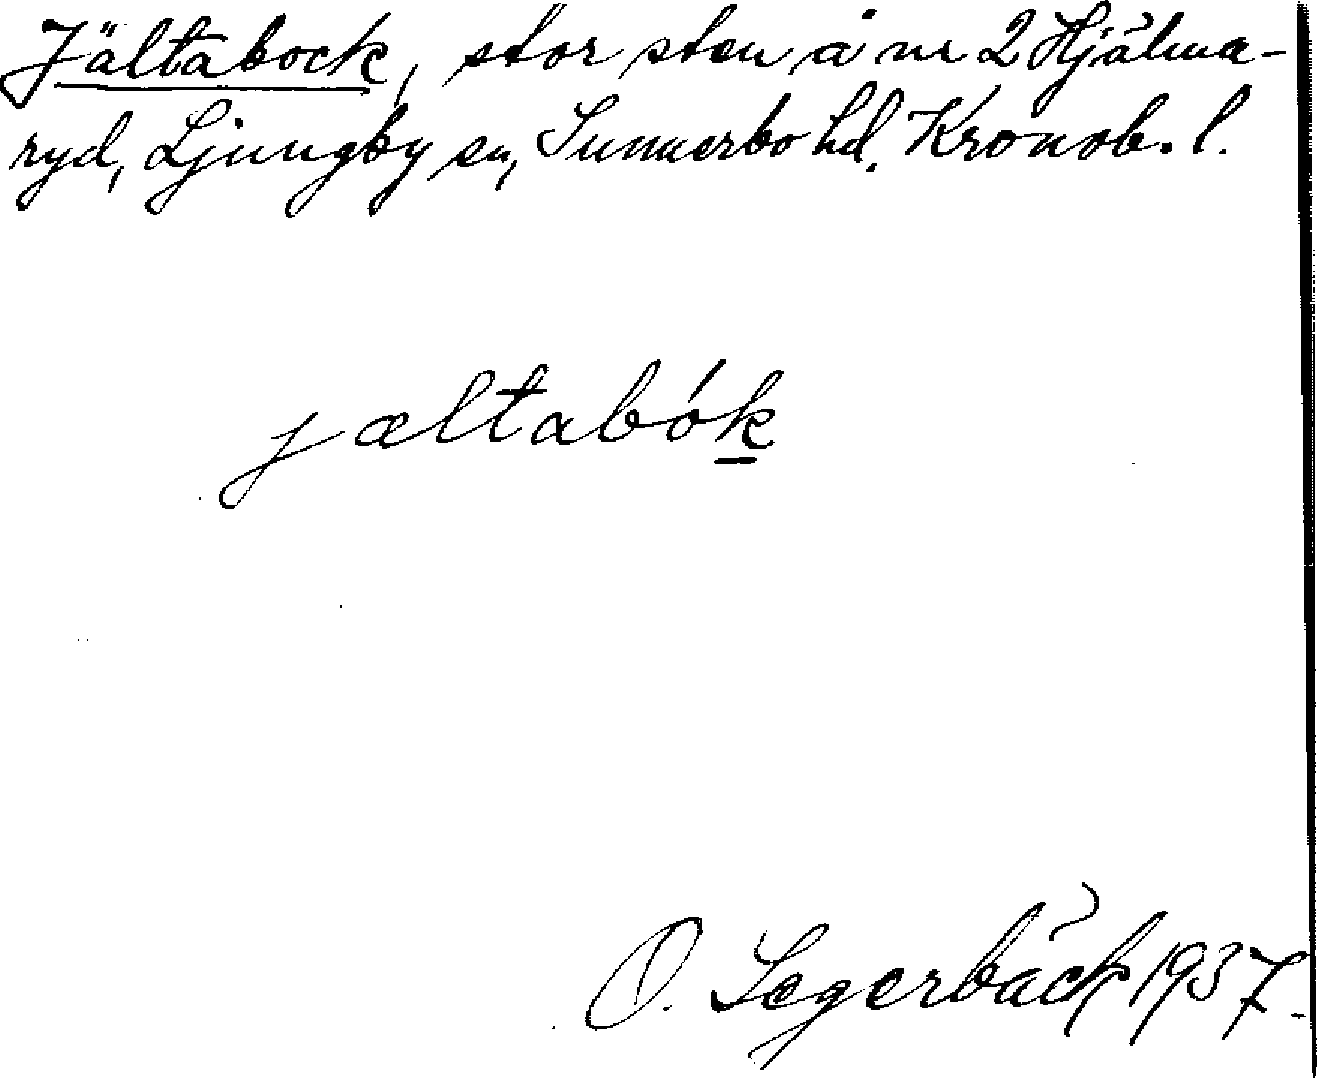 Jältabock, stor sten å nr 2 Hjälma-
ryd, Ljungby sn, Sunnerbo hd. Kronob. l.
jæltabók
O. Segerbäck 1937.